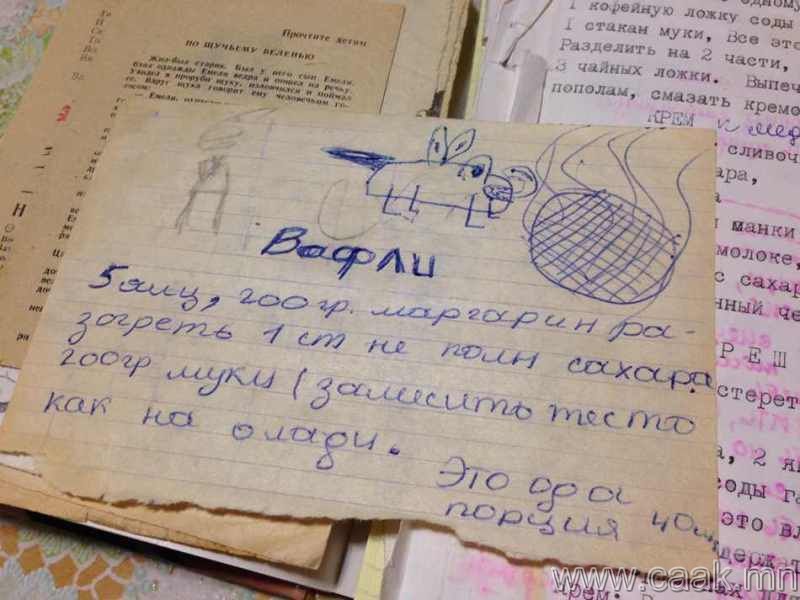 Прочтите детям
ПО ЩУЧЬЕМУ ВЕЛЕНЬЮ
Жил-был старик. Был у него сын Емеля.
однажды Емеля ведра и пошел на речку.
Увидел в проруби щуку, изловчился и поймал
ее. Вдруг щука говорит ему человечьим го-
лосом:
— Емеля,
Вафли
5 яиц, 200гр. маргарин ра-
зогреть 1 ст не полн сахара
200гр муки (замесить тесто
как на олади.
Это одна
порция
одному
1 кофейную ложку соды
1 стакан муки, Все это
Разделить на 2 части,
3 чайных ложки. Выпеч
пополам, смазать кремо
КРЕМ к мед
сливоч
ара,
манки
молоке,
с саха
нный че
РЕШ
стерет
а, 2 я
соды га
это вл
держат
крем:
www.caak.mn